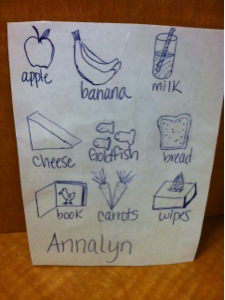 apple
banana
milk
cheese
Goldfish
bread
book
carrots
wipes
Annalyn